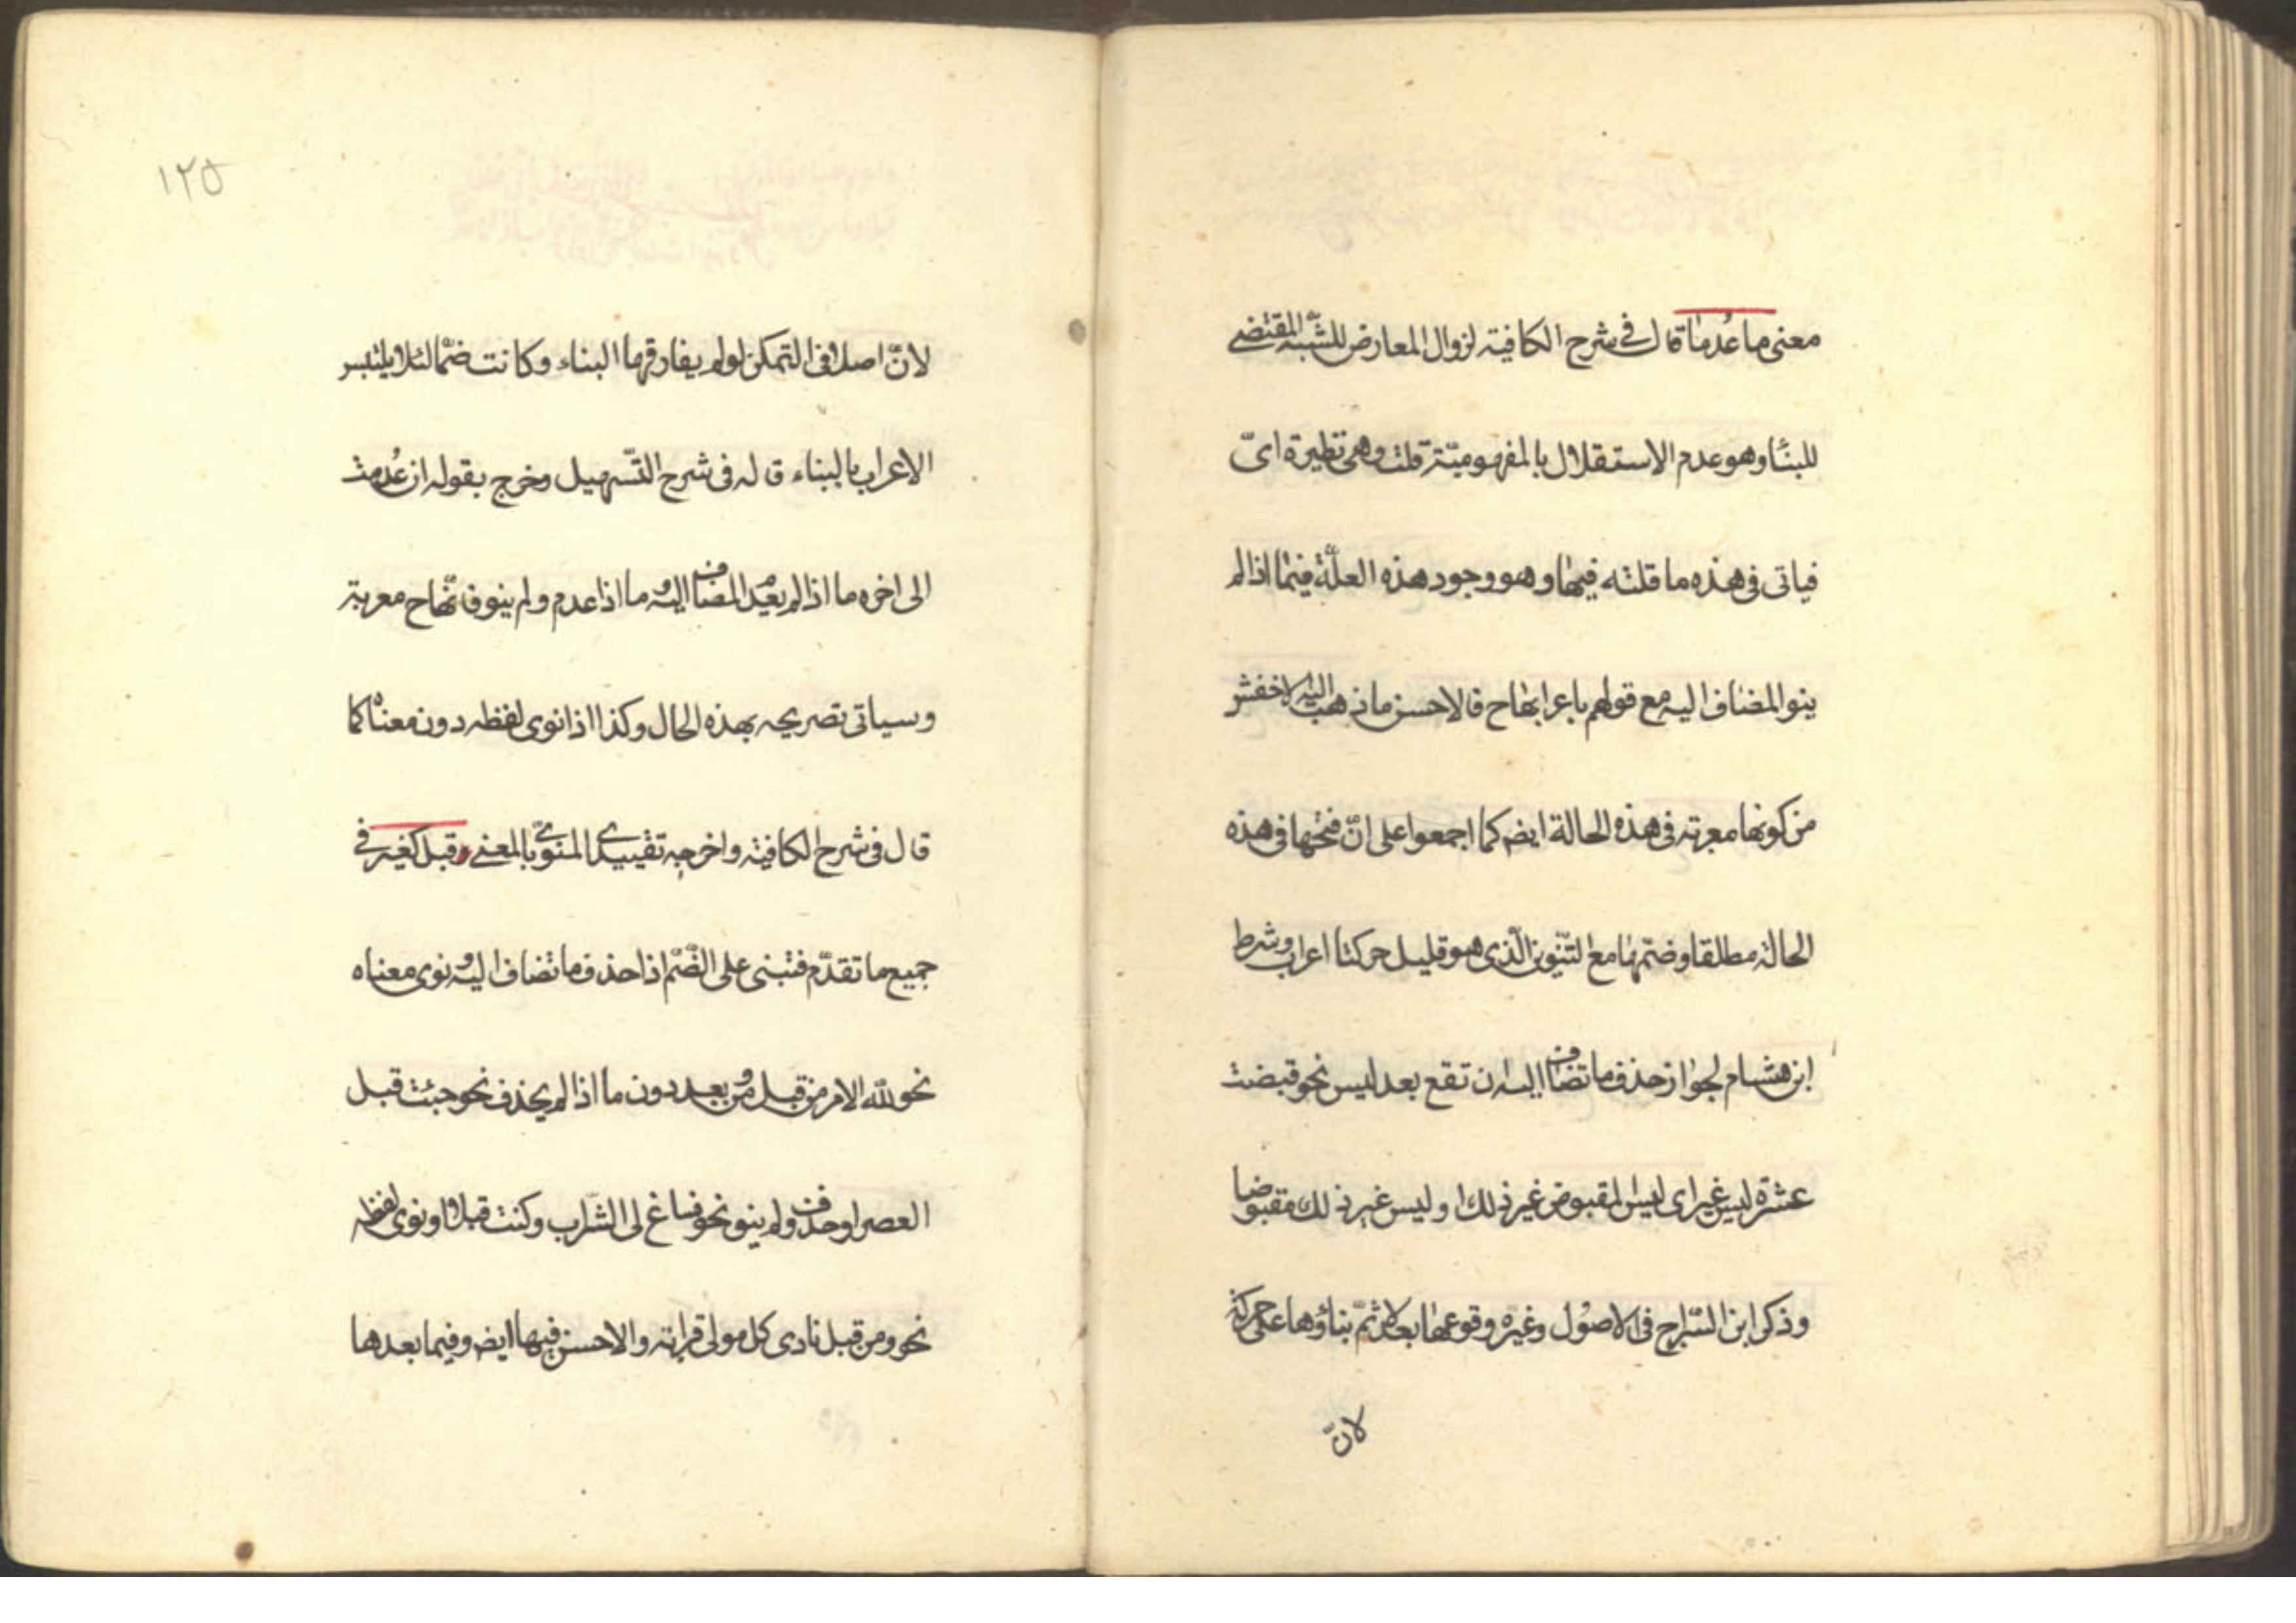 معنى ما عُدما قال في شرح الكافية لزوال المعارض للشّبه المقتضى
للبناء وهو عدم الاستقلال بالمفهوميّة قلت وهى نظيرة اىّ
فياتى فى هذه ما قلته فيها وهو وجود هذه العلّة فيما اذا لم
ينو المضاف اليه مع قولهم باعرابها ح فالاحسن ما ذهب اليه الاخفش
من كونها معربة فى هذه الحالة ايضم كما اجمعوا على انّ فتحها فى هذه
الحالة مطلقا وضمّها مع التنّوين الّذى هو قليل حركتا اعراب وشرط
ابن هشام لجواز حذف ما تضاف اليه ن تقع بعد ليس نحو قبضت
عشرة ليس غير اى ليس المقبوض غير ذلك او ليس غير ذلك مقبوضا
وذكر ابن السّراج فى الاصول وغيره وقوعها بعد لا ثمّ بناؤها على حركة
لانّ
١٢٥
لانّ اصلا فى التمكن لولم يفارقها البناء وكانت ضمّا لئلا يلتبس
الاعراب بالبناء قاله فى شرح التّسهيل وخرج بقوله ان عُدمت
الى اخره ما اذا لم يعدم المضاف اليه وما اذا عدم ولم ينو فانّها ح معربة
وسياتى تصريحه بهذه الحال وكذا اذا نوى لفظه دون معناه كما
قال فى شرح الكافية واخرجه تقييدى المنوىّ بالمعنى وقبل كغير فى
جميع ما تقدّم فتبنى على الضّم اذا حذف ما تضاف اليه ونوى معناه
نحو لله الامر من قبل ومن بعد دون ما اذا لم يحذف نحو جئت قبل
العصر او حذف ولم ينو نحو فساغ لى الشّراب وكنت قبلا او نوى لفظه
نحو ومن قبل نادى كل مولى قرابة والاحسن فيها ايضم وفيما بعدها